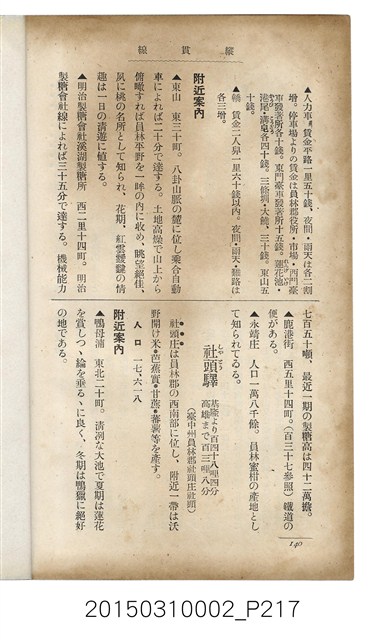 縱貫線
▲人力車 賃金平路一里五十錢、夜間・雨天は各二割
增。停車場よりの賃金は員林郡役所・市場・西門臺
車發著所各十錢。東門臺車發著所十五錢。蓮花池・
港尾・溝皂各四十錢。三條圳・大饒、三十錢。東山五
十錢。
▲轎 賃金二人舁一里六十錢以內。夜間・雨天・難路は
各三增。
附近案內
▲東山 東三十町。八卦山脈の麓に位し乘合自動
車によれば二十分で達する。土地高燥で山上から
俯瞰すれば員林平野を一眸の內に收め、眺望絕佳、
夙に桃の名所として知られ、花期、紅雲靉靆の情
趣は一日の清遊に値する。
▲明治製糖會社溪湖製糖所 西二里十四町。明治
製糖會社線によれば三十五分で達する。機械能力
七百五十噸、最近一期の製糖高は四十二萬擔。
▲鹿港街 西五里十四町。(百三十七參照)鐵道の
便がある。
▲永靖庄 人口一萬八千餘。員林蜜柑の產地とし
て知られてゐる。
社頭驛
基隆より百四十八哩四分
高雄まで百三哩八分
(臺中州員林郡社頭庄社頭)
社頭庄は員林郡の西南部に位し、附近一帶は沃
野開け米・芭蕉實・甘蔗・蕃薯等を產す。
人口 一七、六一八
附近案內
▲鴨母湳 東北二十町。清冽な大池で夏期は蓮花
を賞しつゝ綸を垂るゝに良く、冬期は鴨獵に絕好
の地である。
140
20150310002_P217